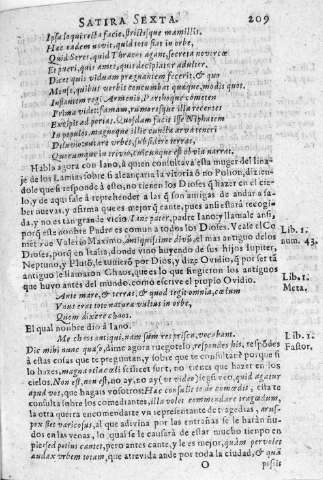 SATIRA SEXTA. 209
Ipsa loqui recta facie, strictisque mamillis.
Hac eadem novit, quid toto fiat in orbe,
Quid Seres, quid Thraces agant, secreta novercæ
Et pueri, quis amet, quis decipiatur adulter.
Dicet quis viduam prægnantem fecerit, & quo
Mense, quibus verbis concumbat quæque, modis quot.
Instantem regi Armenio, Parthoque cometen
Prima videt: famam, rumoresque illa recentes
Excipit ad portas. Quosdam facit isse Niphatem
In populos, magnoque illic cuncta arva teneri
Diluvio: nutare urbes, subsidere terras,
Quocumque in trivio, cuicunque est obvia narrat.
Habla agora con Iano, à quien consultava esta muger del lina-
je de los Lamias sobre si alcançaria la vitoria ò no Polion, dizien-
dole que si respondè à esto, no tienen los Dioses q̃ hazer en el cie-
lo, y de aqui sale à reprehender a las q̃ son amigas de andar a sa-
ber nuevas, y afirma que es mejor q̃ cante, pues anse estarà recogi-
da, y no es tan grande vicio. Iane pater, padre Iano: y llamale ansi,
porq̃ este nombre Padre es comun a todos los Dioses. Veale el Co
met por Valerio Maximo, el mas antiguo de los
Dioses, porq̃ en Italia, donde vino huyendo de sus hijos Iupiter,
Neptuno, y Plutõ, le tuvierõ por Dios, y dize Ovidio, q̃ por ser tã
antiguo le llamaron Chaos, que es lo que fingieron los antiguos
que huvo antes del mundo: como escrive el propio Ovidio.
Ante mare, & terras, & quod tegit omnia, cælum
Vnus erat toto naturæ vultus in orbe,
Quem dixere chaos.
El qual nombre dio à Iano.
Me chaos antiqui, nam sum res prisca, vocabant.
Dic mihi nunc quæso, dime agora ruegotelo, respondes his, respõdes
à estas cosas que te preguntan, y sobre que te consultarà porque si
lo hazes, magna otia cæli scilicet sunt, no tienes que hazer en los
cielos. Non est, non est, no ay, no ay (à te video) segũ veo, quid agatur
apud vos, que hagais vosotros: Hæc consulit te de comœdis, esta te
consulta sobre los comediantes, illa volet commendare tragœdum,
la otra querra encomendarte vn representante de tragedias, arus-
pex fiet varicosus, al que adivina por las entrañas se le haràn ñu-
dos en las venas, lo qual se le causarà de estar mucho tiempo en
pie: sed potius cantet, pero antes cante, y le es mejor, quam pervolet
audax vrbem totam, que atrevida ande por toda la ciudad, & quæ
O possit
Lib. 1.
num. 43.
Lib. 1.
Meta.
Lib. 1.
Fastor.